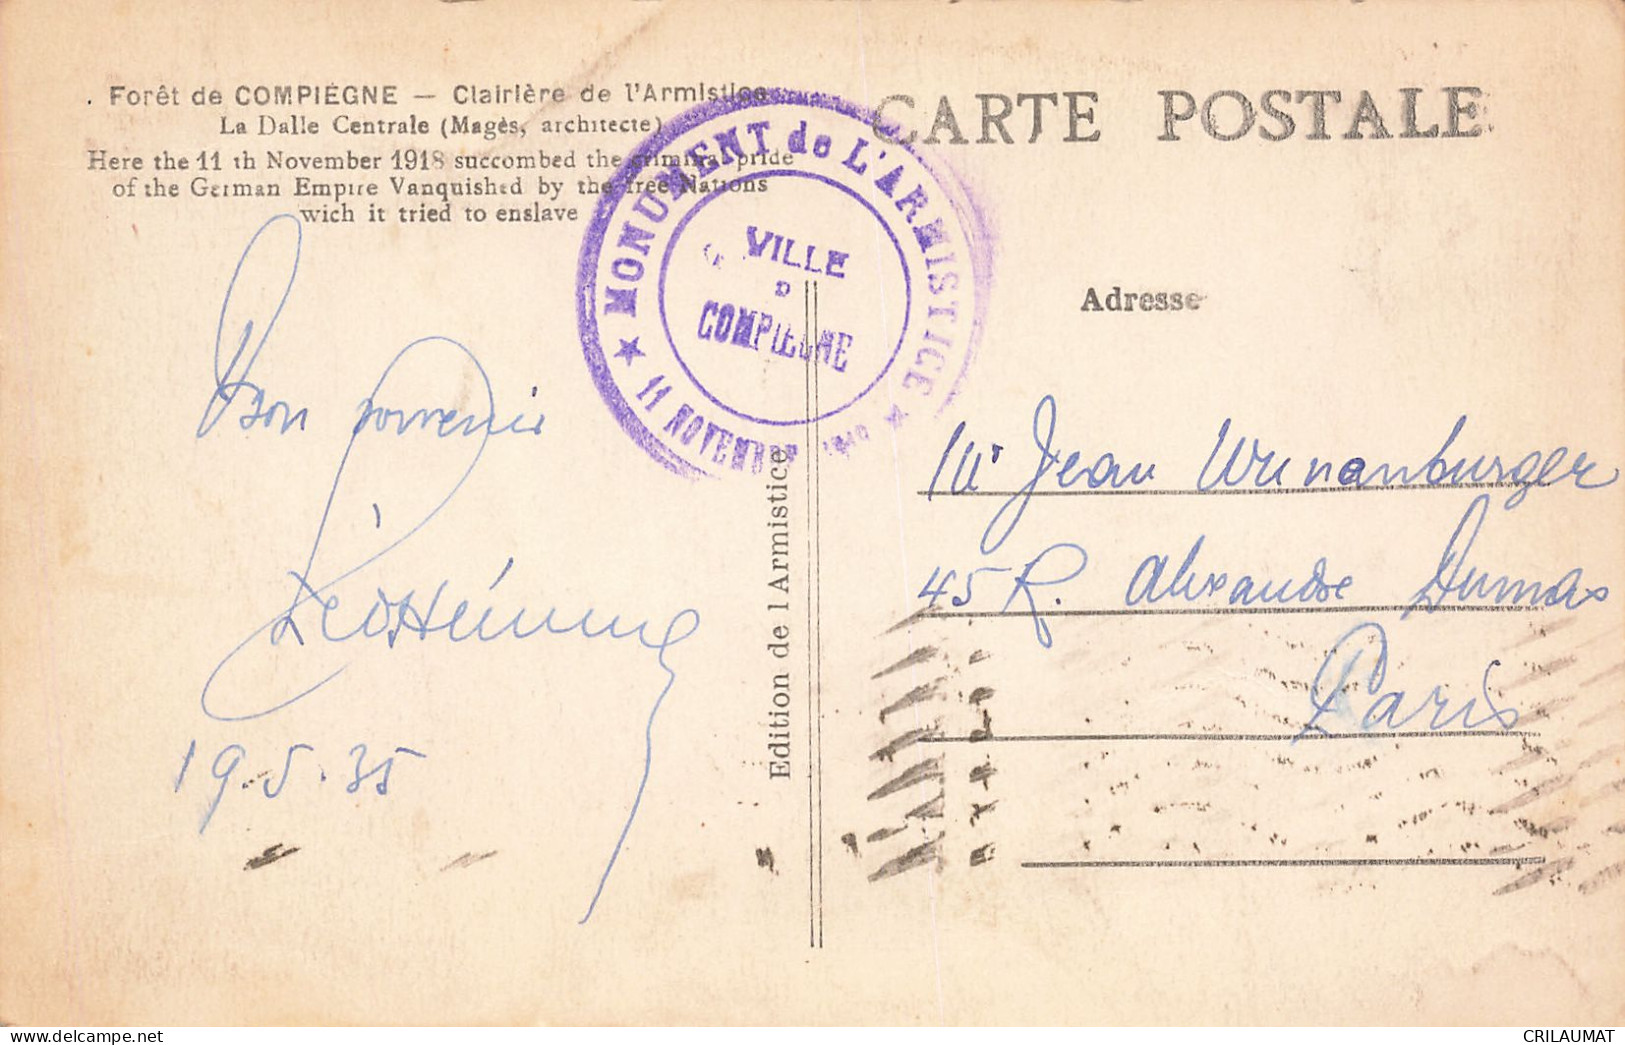 Forêt de COMPIÉGNE — Clairière de l'Armistice
La Dalle Centrale (Magès, architecte)
Here the 11 th November 1918 succombed the criminal pride
of the German Empire Vanquished by the free Nations
wich it tried to enslave
CARTE POSTALE
★ MONUMENT de L'ARMISTICE ★
11 NOVEMBRE
VILLE
D
COMPIEGNE
Adresse
Bon souvenir
19.5.35
Edition de l Armistice
Mr Jean Wunenburger
45 R. Alexandre Dumas
Paris
delcampe.net
CRILAUMAT